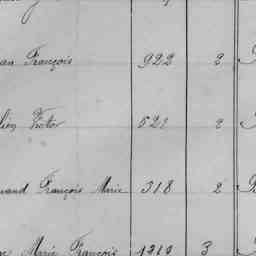 François 922 2
Victor 521 2
François Marie 318 2
Marie François 1210 3